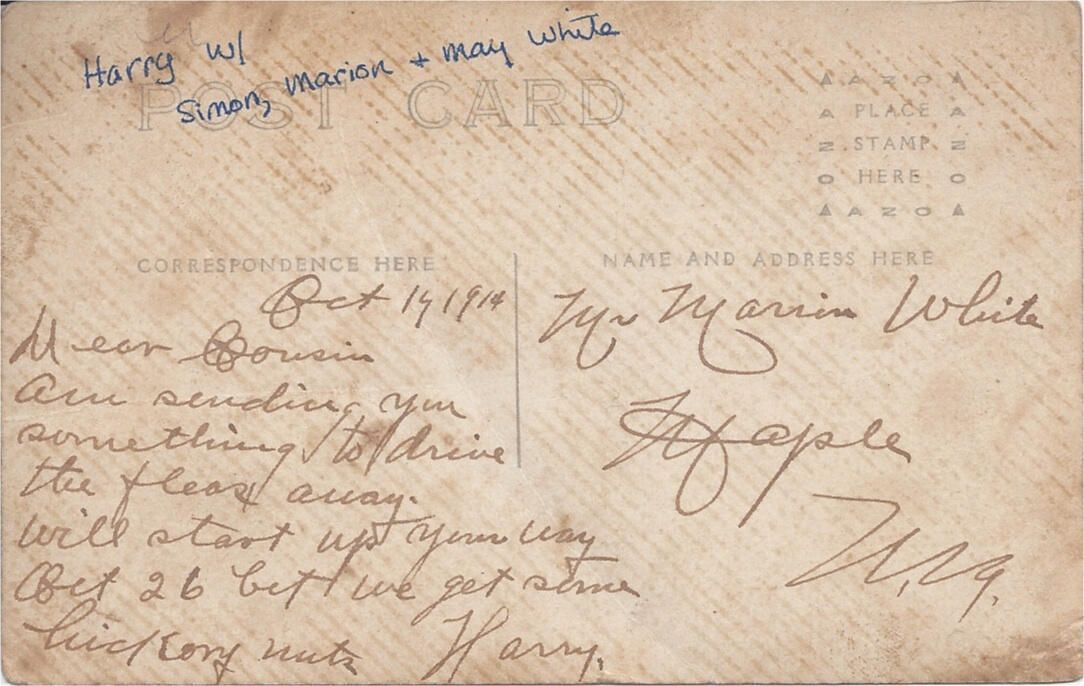 Harry w/
Simon, Marion + May White
POST CARD
AZO
PLACE
STAMP
HERE
AZO
CORRESPONDENCE HERE
NAME AND ADDRESS HERE
Oct 19 1914
Dear Cousin
Am sending you
something to drive
the fleas away.
Will start up your way
Oct 26 bet we get some
hickory nuts Harry.
Mr Marion White
Maple
N.Y.